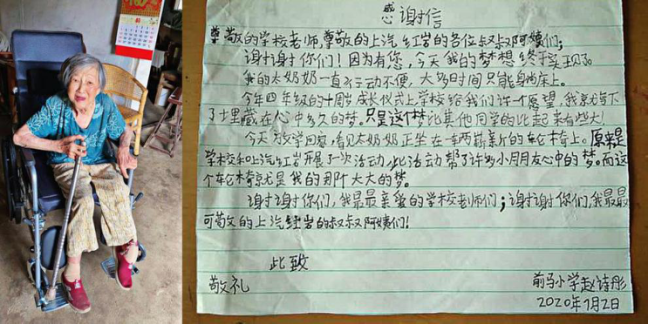 感谢信
尊敬的学校老师,尊敬的上汽红岩的各位叔叔阿姨们:
谢谢你们!因为有您,今天我的梦想终于实现了。
我的太奶奶一直行动不便,大多时间只能身躺床上。
今年四年级的十周岁成长仪式上学校给我们许一个愿望,我就写下
了十里藏在心中多久的梦。只是这个梦比其他同学的比起来有些大!
今天放学回家,看见太奶奶正坐在一车两崭新的轮椅上。原来是
学校和上汽红岩开展了一次活动,此活动帮了许多小朋友心中的梦,而这
个车轮椅就是我的那个大大的梦。
谢谢你们,我最最亲爱的学校老师们;谢谢你们,我最最
可敬的上汽红岩的叔叔阿姨们!
此致
敬礼
前马小学赵诗彤
2020年7月2日